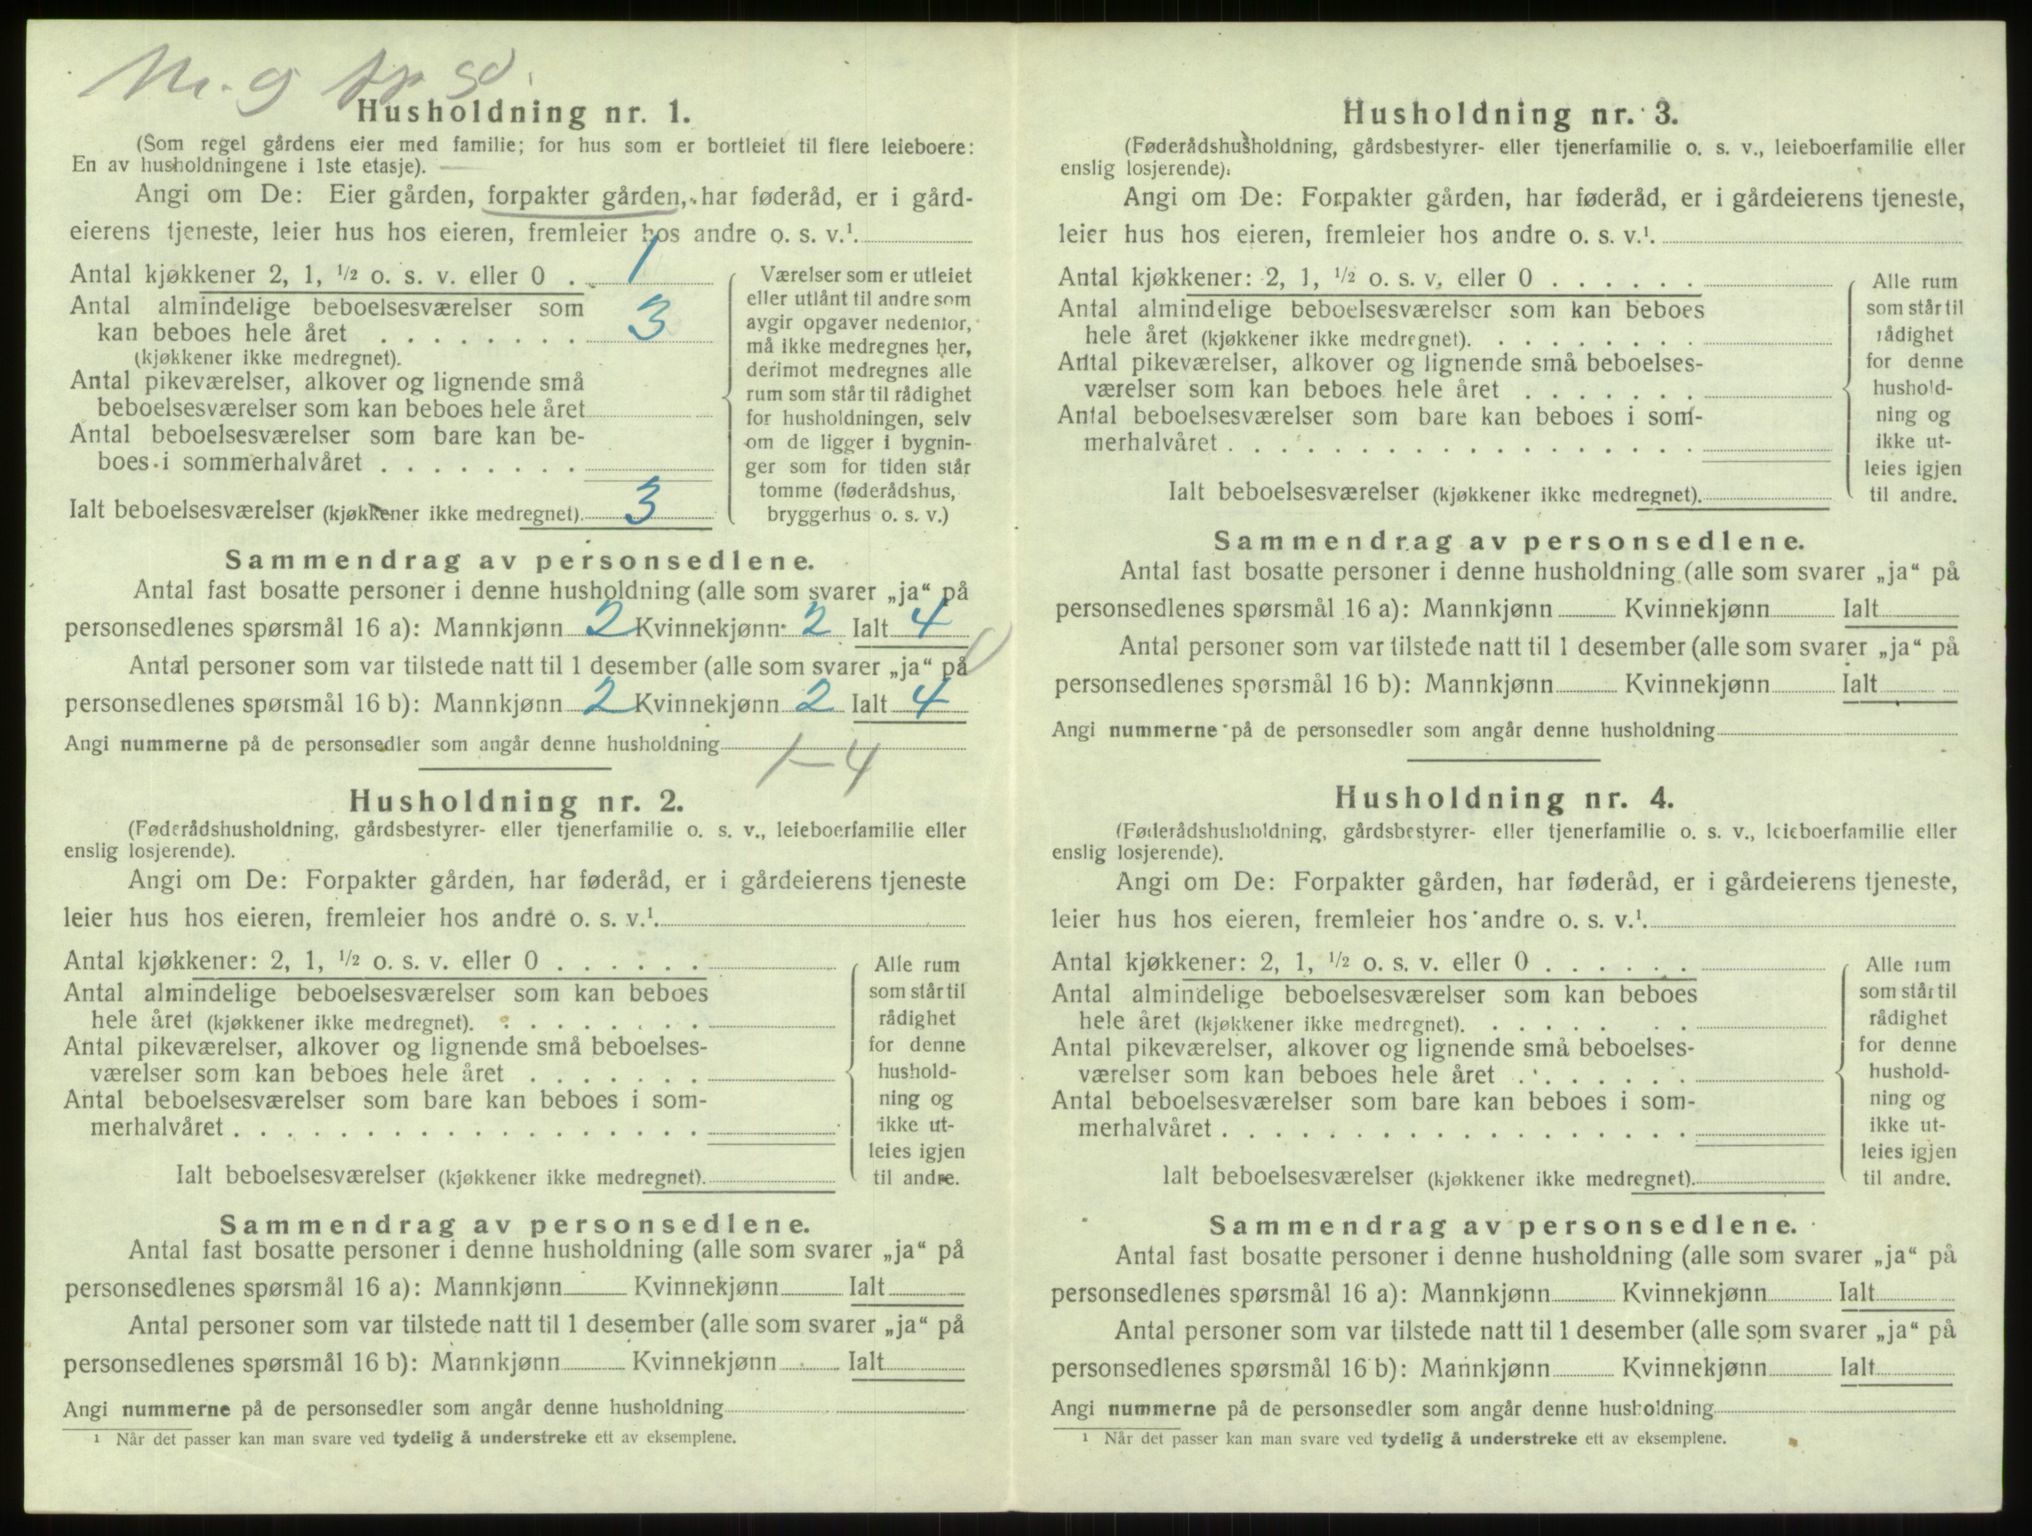 Husholdning nr. 1.
(Som regel gårdens eier med familie; for hus som er bortleiet til flere leieboere:
En av husholdningene i 1ste etasje).
Angi om De: Eier gården, forpakter gården, har føderåd, er i gård-
eierens tjeneste, leier hus hos eieren, fremleier hos andre o. s. v.¹.
Antal kjøkkener 2, 1, ½ o. s. v. eller 0 . 1
Antal almindelige beboelsesværelser som
kan beboes hele året . . . . . . . . 3
(kjøkkener ikke medregnet).
Antal pikeværelser, alkover og lignende små
beboelsesværelser som kan beboes hele året
Antal beboelsesværelser som bare kan be-
boes i sommerhalvåret . . . . . . . .
Ialt beboelsesværelser (kjøkkener ikke medregnet). 3
Værelser som er utleiet
eller utlånt til andre som
avgir opgaver nedenfor,
må ikke medregnes her,
derimot medregnes alle
rum som står til rådighet
for husholdningen, selv
om de ligger i bygnin-
ger som for tiden står
tomme (føderådshus,
bryggerhus o. s. v.)
Sammendrag av personsedlene.
Antal fast bosatte personer i denne husholdning (alle som svarer „ja“ på
personsedlenes spørsmål 16 a): Mannkjønn 2 Kvinnekjønn 2 Ialt 4
Antal personer som var tilstede natt til 1 desember (alle som svarer „ja“ på
personsedlenes spørsmål 16 b): Mannkjønn 2 Kvinnekjønn 2 Ialt 4
Angi nummerne på de personsedler som angår denne husholdning
1-4
Husholdning nr. 2.
(Føderådshusholdning, gårdsbestyrer- eller tjenerfamilie o. s. v., leieboerfamilie eller
enslig losjerende).
Angi om De: Forpakter gården, har føderåd, er i gårdeierens tjeneste
leier hus hos eieren, fremleier hos andre o. s. v.¹.
Antal kjøkkener: 2, 1, ½ o. s. v. eller 0 . . . . . .
Antal almindelige beboelsesværelser som kan beboes
hele året (kjøkkener ikke medregnet). . . . . . . . .
Antal pikeværelser, alkover og lignende små beboelses-
værelser som kan beboes hele året . . . . . . .
Antal beboelsesværelser som bare kan beboes i som-
merhalvåret . . . . . . . . . . . . . . . . . .
Ialt beboelsesværelser (kjøkkener ikke medregnet).
Alle rum
som står til
rådighet
for denne
hushold-
ning og
ikke ut-
leies igjen
til andre.
Sammendrag av personsedlene.
Antal fast bosatte personer i denne husholdning (alle som svarer „ja“ på
personsedlenes spørsmål 16 a): Mannkjønn Kvinnekjønn Ialt
Antal personer som var tilstede natt til 1 desember (alle som svarer „ja“ på
personsedlenes spørsmål 16 b): Mannkjønn Kvinnekjønn Ialt
Angi nummerne på de personsedler som angår denne husholdning
¹ Når det passer kan man svare ved tydelig å understreke ett av eksemplene.
Husholdning nr. 3.
(Føderådshusholdning, gårdsbestyrer- eller tjenerfamilie o. s. v., leieboerfamilie eller
enslig losjerende).
Angi om De: Forpakter gården, har føderåd, er i gårdeierens tjeneste,
leier hus hos eieren, fremleier hos andre o. s. v.¹.
Antal kjøkkener: 2, 1, ½ o. s. v. eller 0 . . . . . .
Antal almindelige beboelsesværelser som kan beboes
hele året (kjøkkener ikke medregnet). . . . . . . . .
Antal pikeværelser, alkover og lignende små beboelses-
værelser som kan beboes hele året . . . . . . .
Antal beboelsesværelser som bare kan beboes i som-
merhalvåret . . . . . . . . . . . . . . . . . .
Ialt beboelsesværelser (kjøkkener ikke medregnet).
Alle rum
som står til
rådighet
for denne
hushold-
ning og
ikke ut-
leies igjen
til andre.
Sammendrag av personsedlene.
Antal fast bosatte personer i denne husholdning (alle som svarer „ja“ på
personsedlenes spørsmål 16 a): Mannkjønn Kvinnekjønn Ialt
Antal personer som var tilstede natt til 1 desember (alle som svarer „ja“ på
personsedlenes spørsmål 16 b): Mannkjønn Kvinnekjønn Ialt
Angi nummerne på de personsedler som angår denne husholdning
Husholdning nr. 4.
(Føderådshusholdning, gårdsbestyrer- eller tjenerfamilie o. s. v., leieboerfamilie eller
enslig losjerende).
Angi om De: Forpakter gården, har føderåd, er i gårdeierens tjeneste,
leier hus hos eieren, fremleier hos andre o. s. v.¹.
Antal kjøkkener: 2, 1, ½ o. s. v. eller 0 . . . . . .
Antal almindelige beboelsesværelser som kan beboes
hele året (kjøkkener ikke medregnet). . . . . . . . .
Antal pikeværelser, alkover og lignende små beboelses-
værelser som kan beboes hele året . . . . . . .
Antal beboelsesværelser som bare kan beboes i som-
merhalvåret . . . . . . . . . . . . . . . . . .
Ialt beboelsesværelser (kjøkkener ikke medregnet).
Alle rum
som står til
rådighet
for denne
hushold-
ning og
ikke ut-
leies igjen
til andre.
Sammendrag av personsedlene.
Antal fast bosatte personer i denne husholdning (alle som svarer „ja“ på
personsedlenes spørsmål 16 a): Mannkjønn Kvinnekjønn Ialt
Antal personer som var tilstede natt til 1 desember (alle som svarer „ja“ på
personsedlenes spørsmål 16 b): Mannkjønn Kvinnekjønn Ialt
Angi nummerne på de personsedler som angår denne husholdning
¹ Når det passer kan man svare ved tydelig å understreke ett av eksemplene.